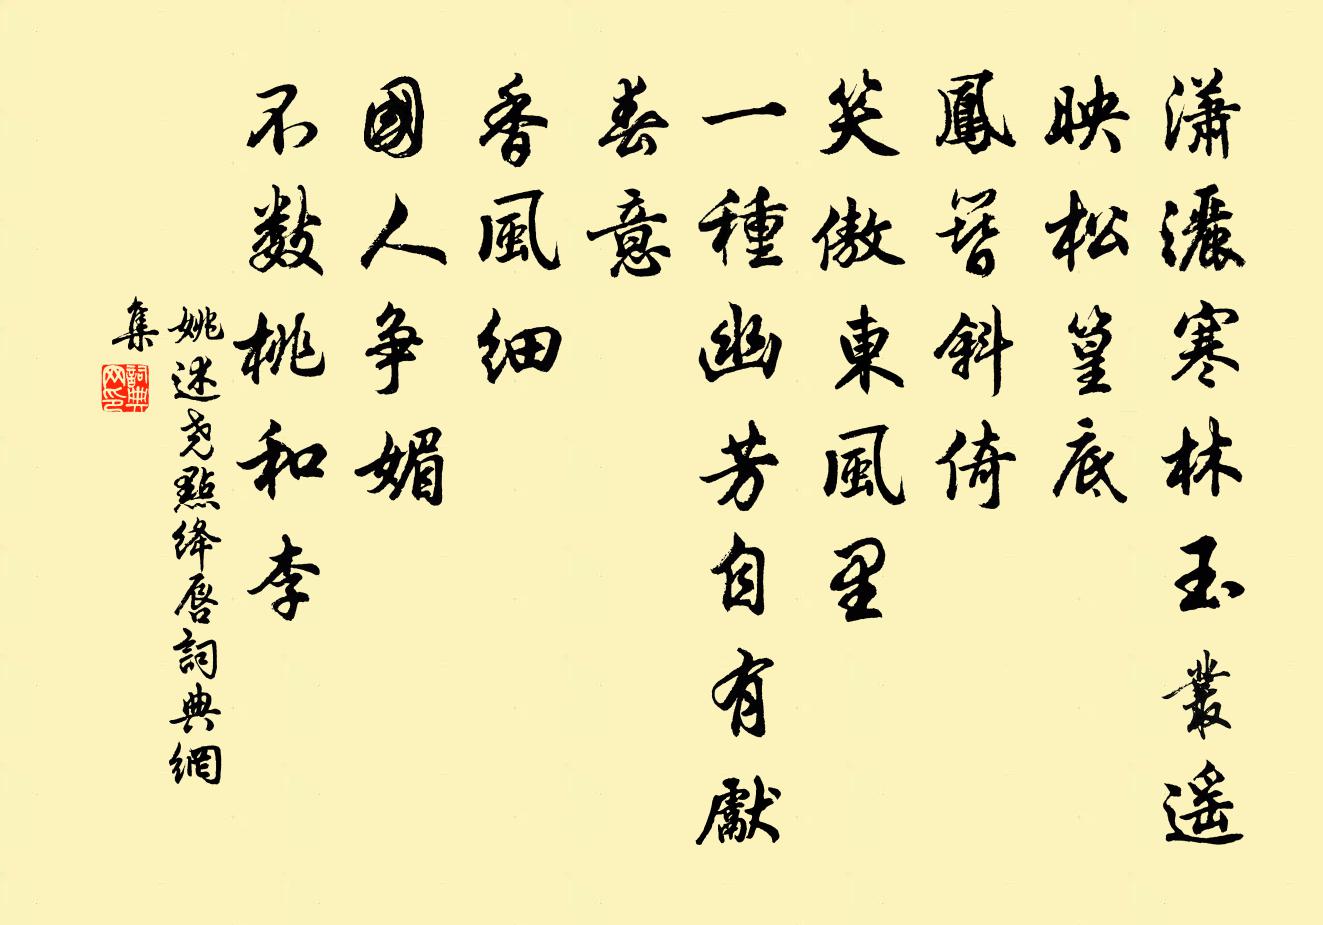 瀟灑寒林玉叢遥
映松篁底
鳳簪斜倚
笑傲東風里
一種幽芳自有獻
春意
香風細
國人争媚
不數桃和李
姚述堯點絳唇詞典網
集
詞典
网印